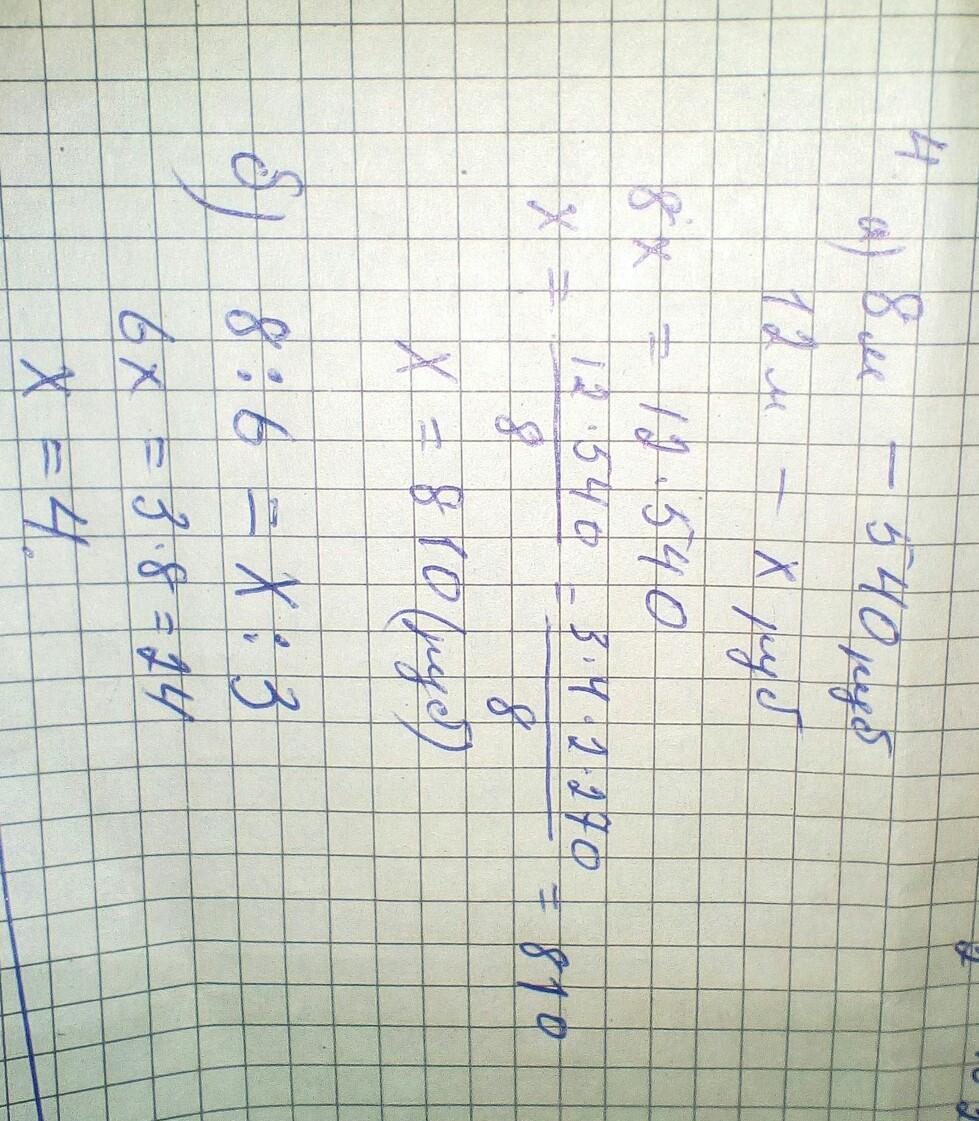 4. а) 8м – 540 руб
12 м – x руб
8x = 12·540
x = 12·540/8 = 3·4·2·270/8 = 810
x = 810 (руб)
б) 8:6 = x:3
6x = 3·8 = 24
x = 4.